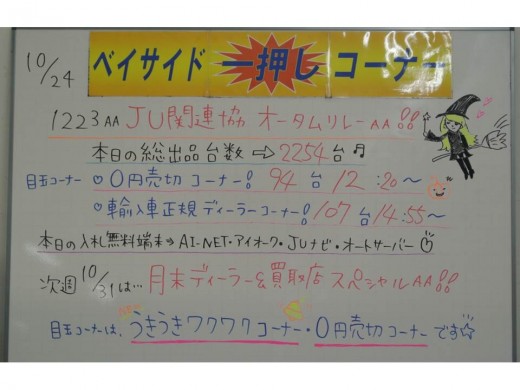 10/24
ベイサイド 一押し コーナー
1223AA JU関連協 オータムリレーAA!!
本日の総出品台数⇨2254台♬
目玉コーナー ♡0円売切コーナー! 94台 12:20～
♡輸入車正規ディーラーコーナー! 107台 14:55～
本日の入札無料端末⇒AI-NET・アイオーク・JUナビ・オートサーバー♡
次週10/31は…月末ディーラー&買取店スペシャルAA!!
目玉コーナーは、うきうきワクワクコーナー・0円売切コーナーです☆